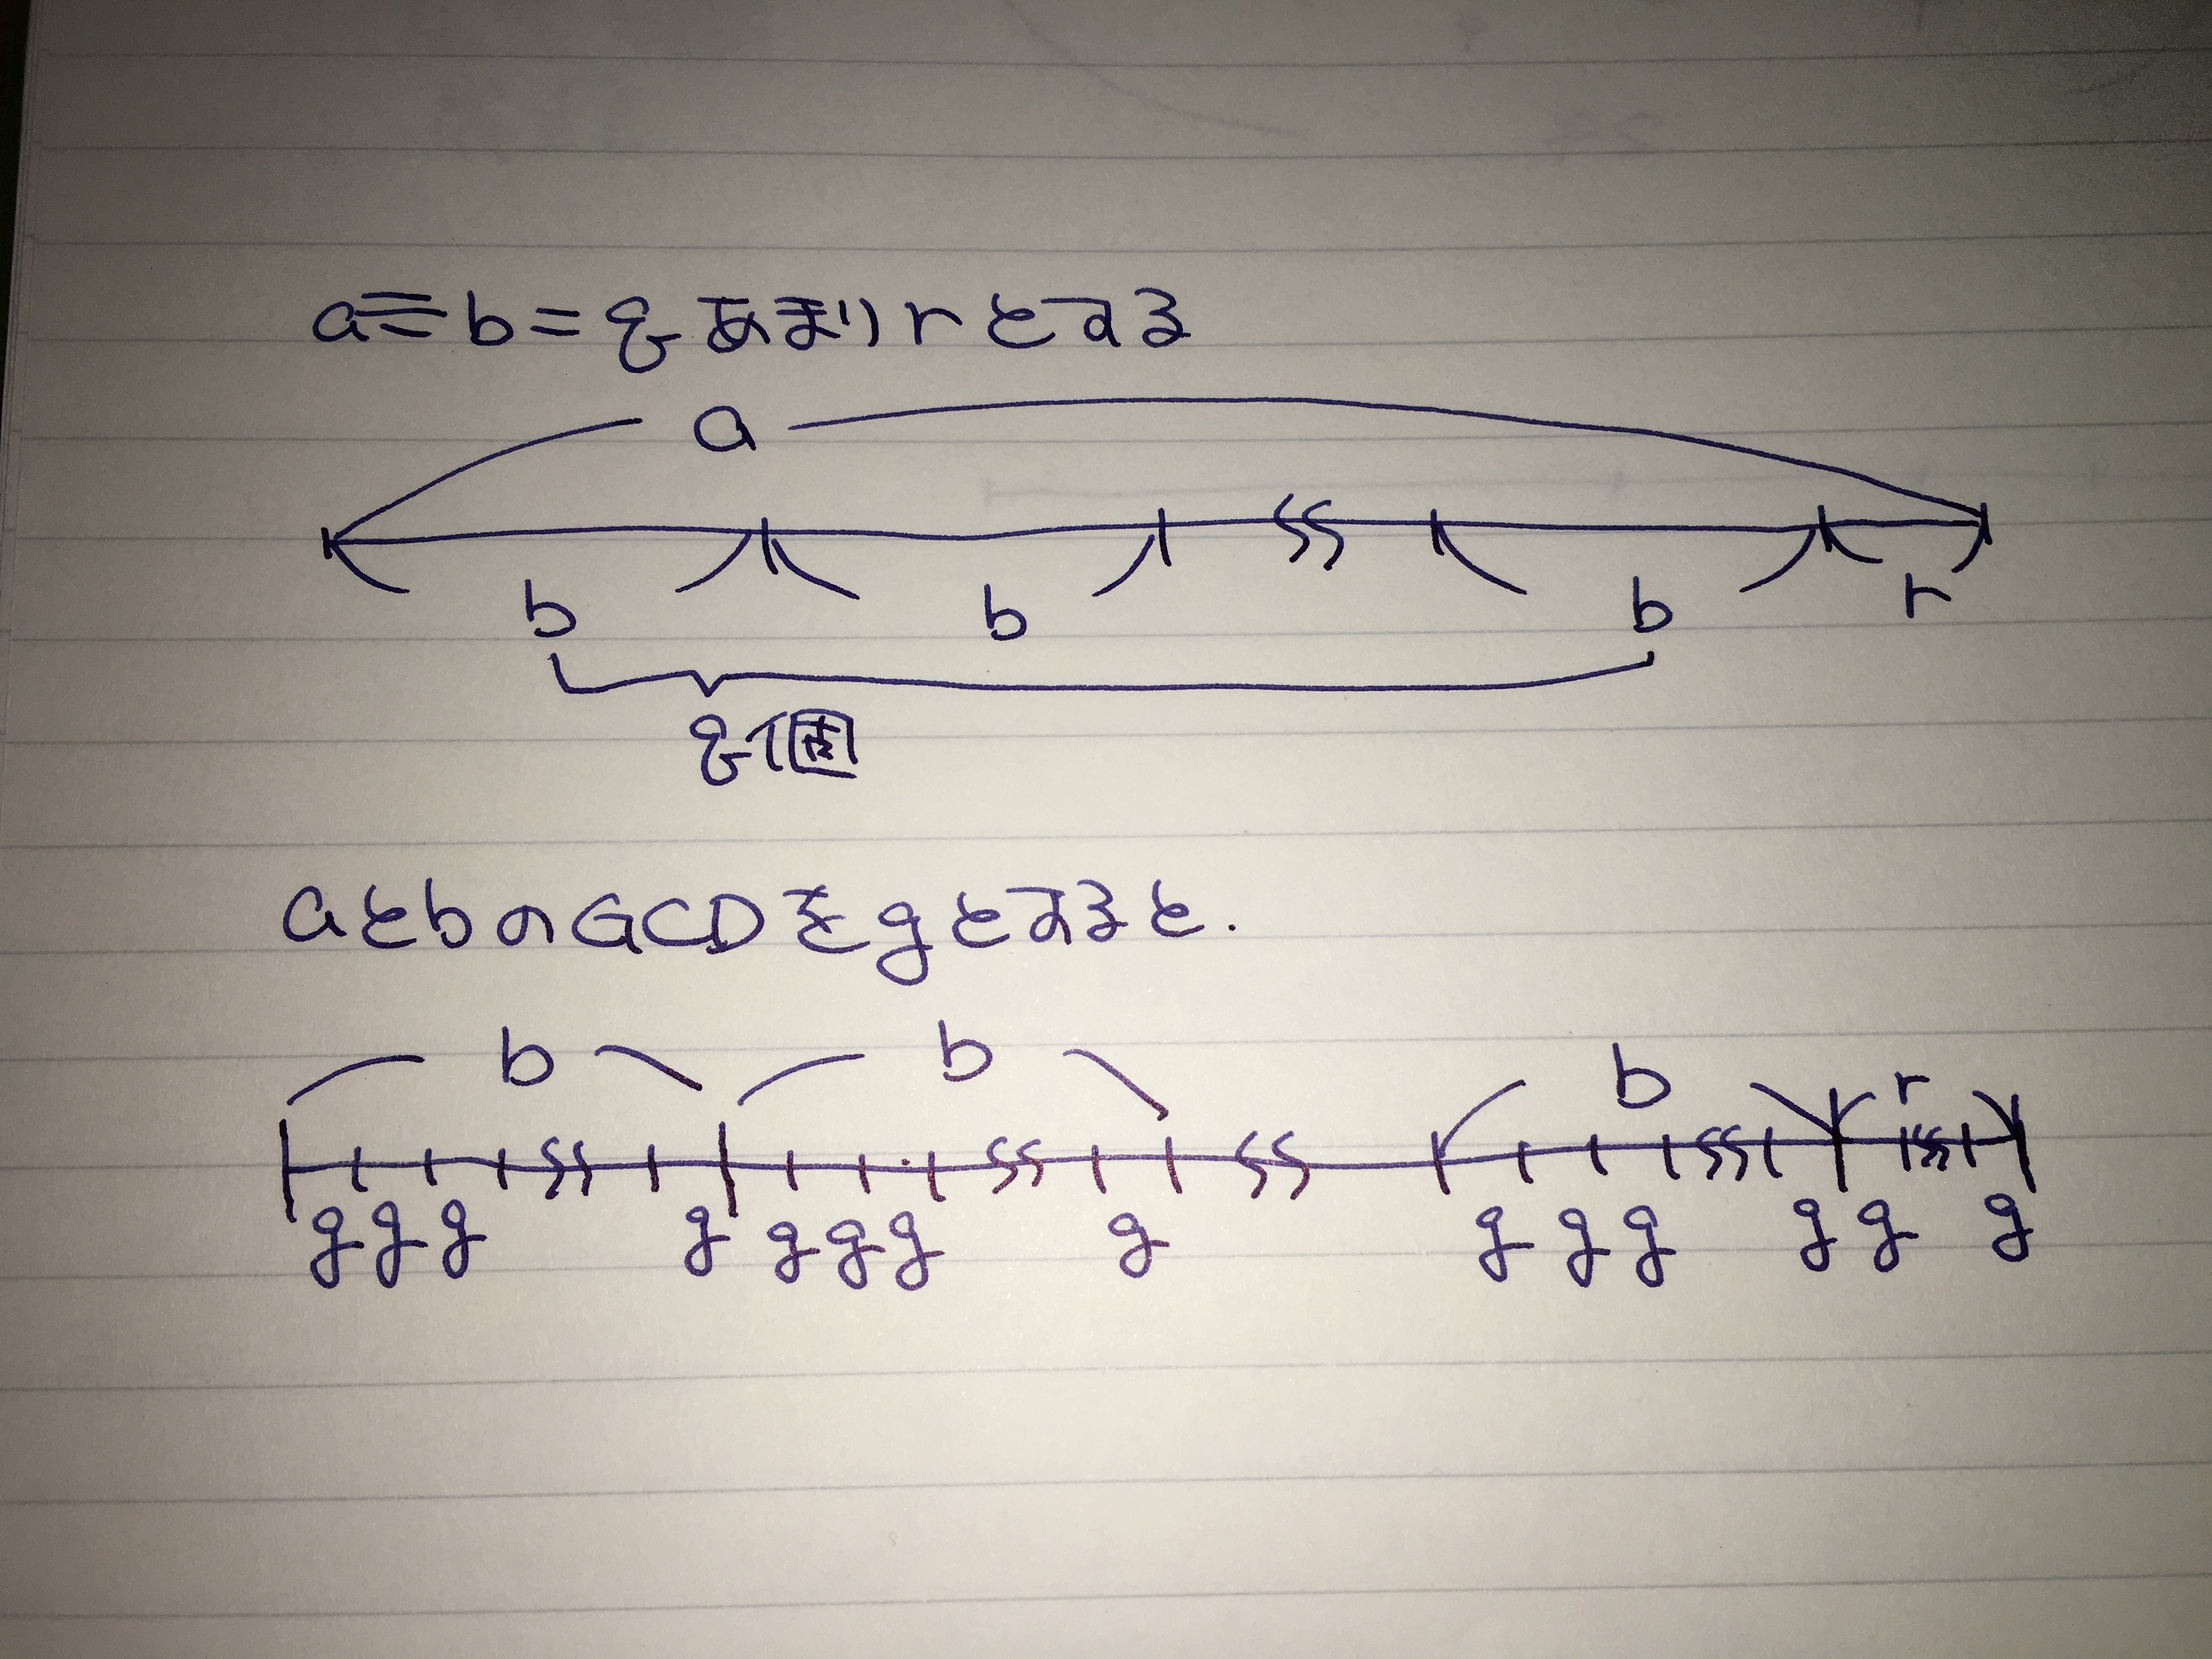 a÷b=q あまり r とする
a
b b b r
q個
aとbのGCDをgとすると.
b b b r
g g g g g g g g g g g g g g